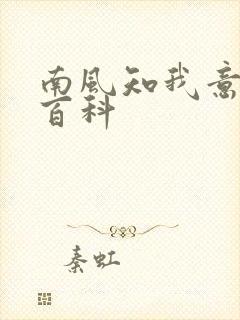 南風知我意
百科
秦虹